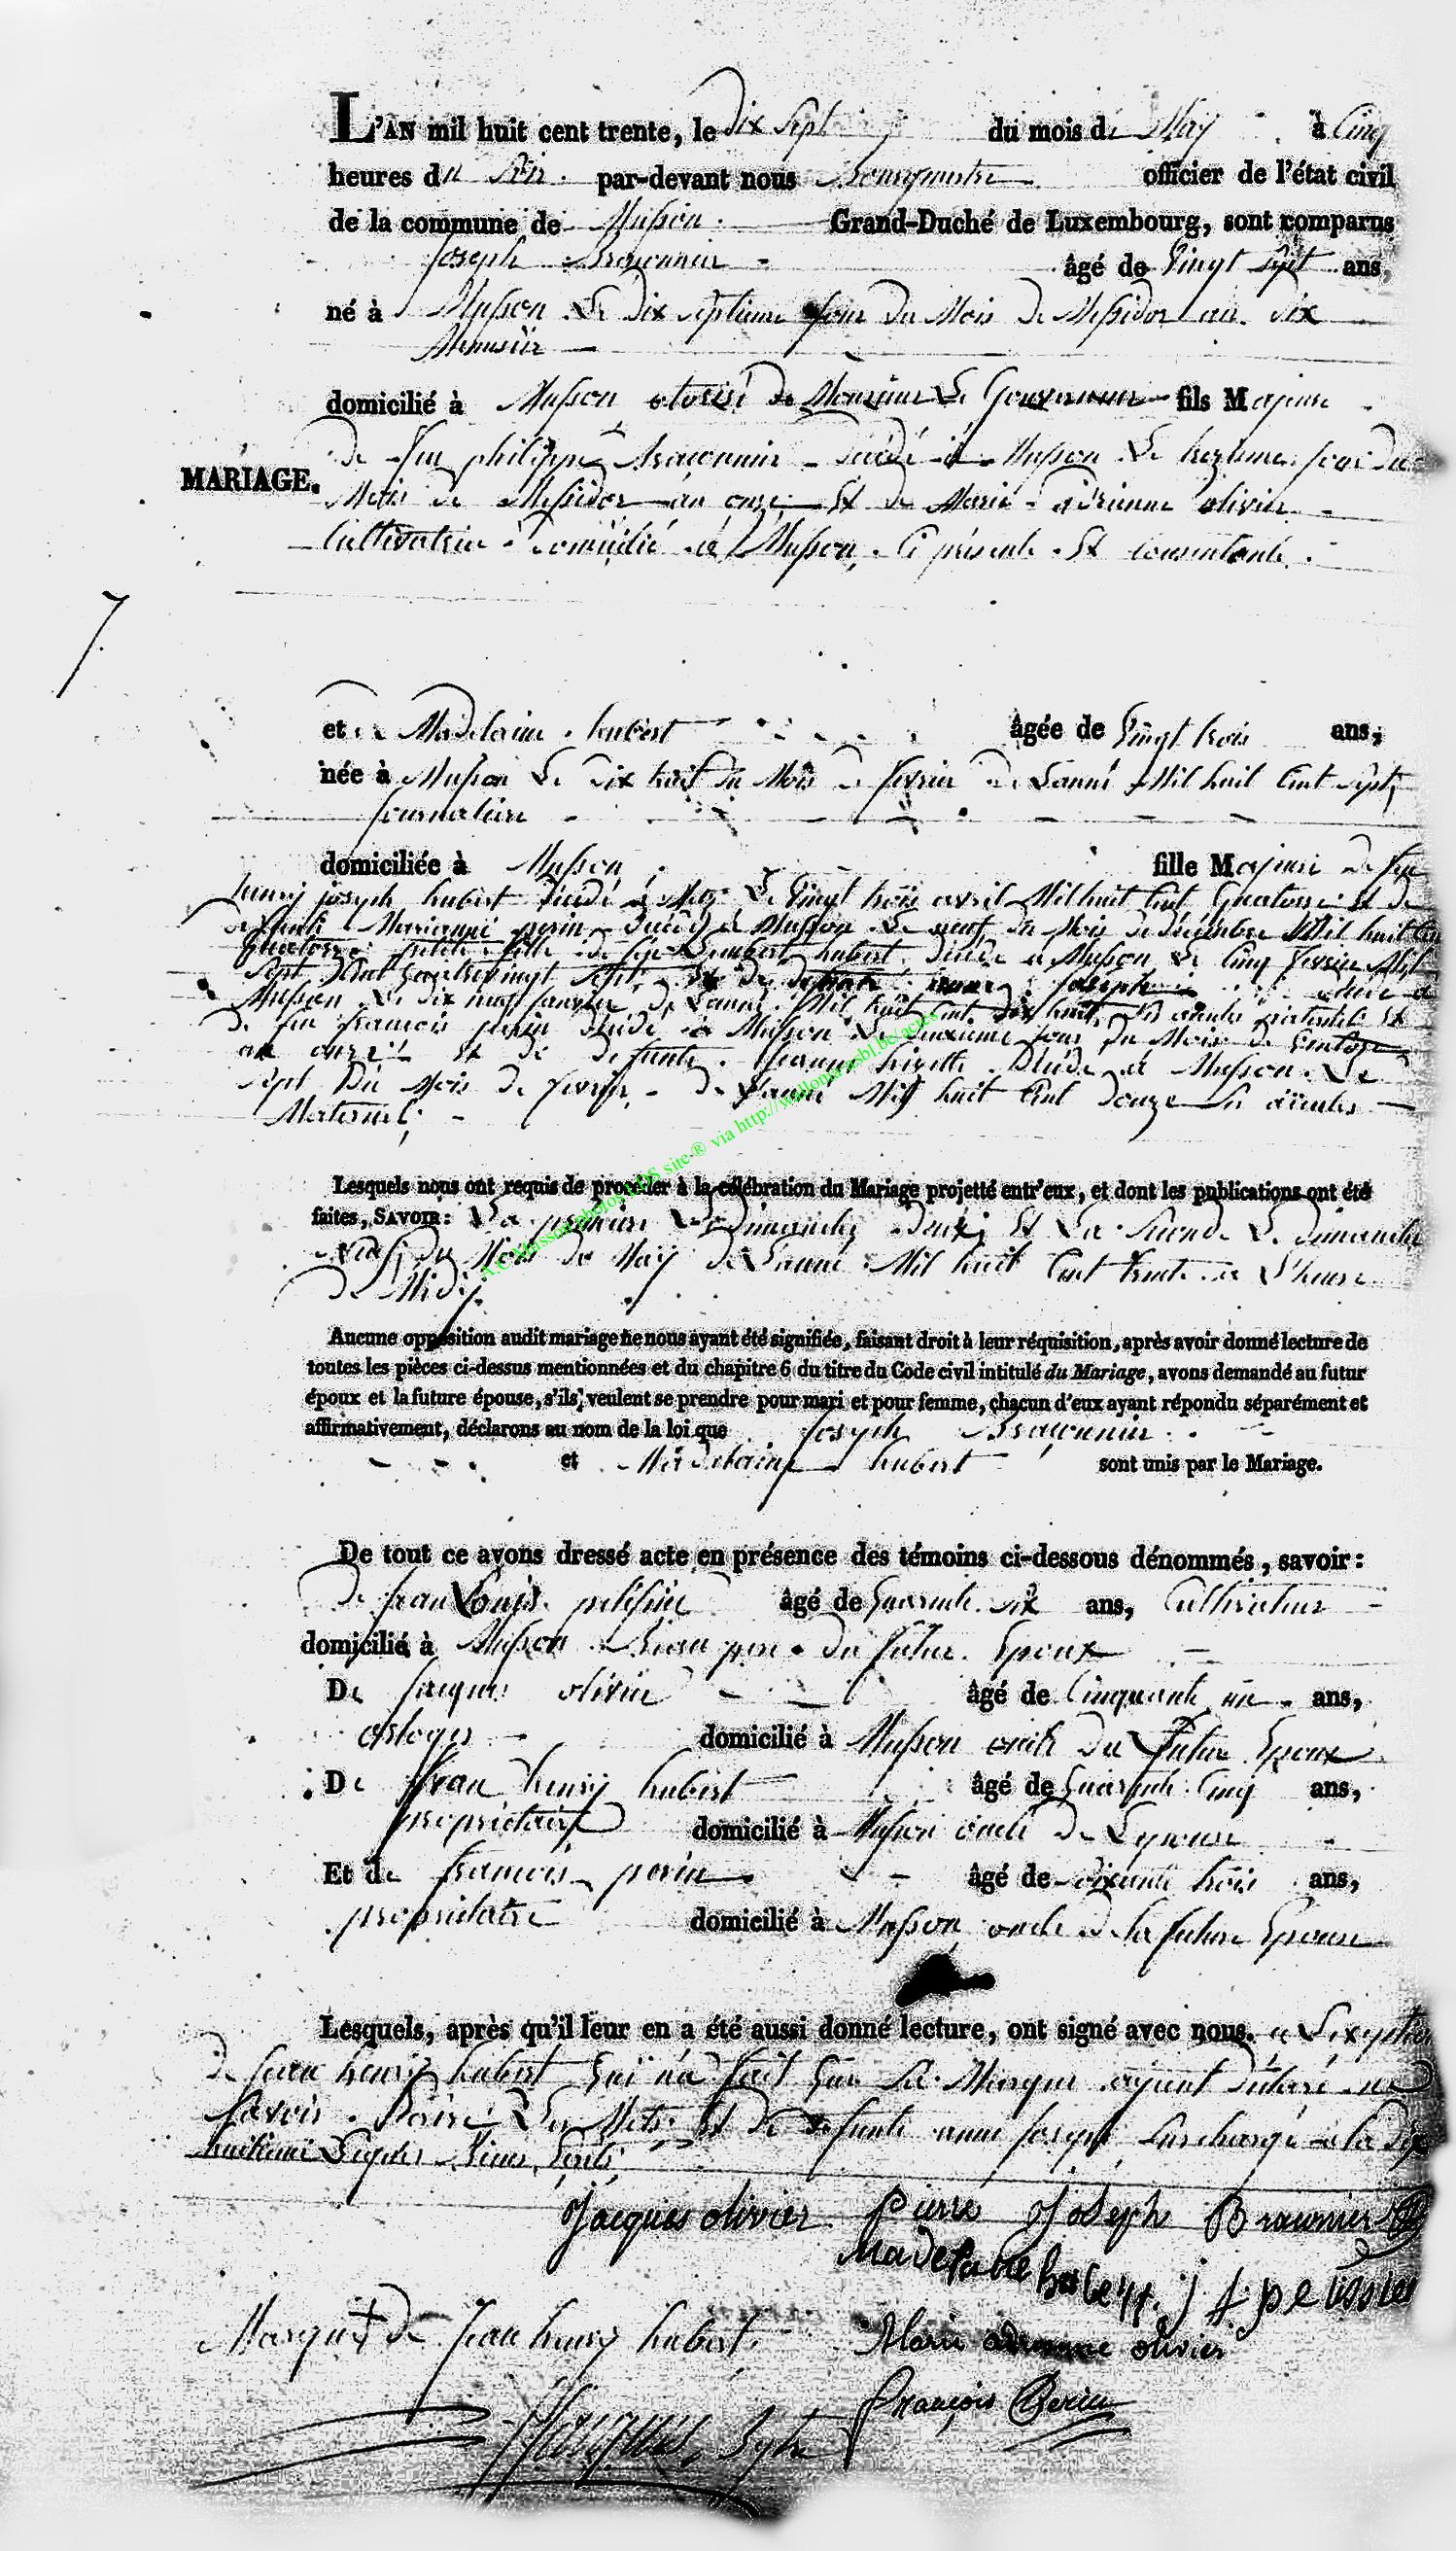 L'AN mil huit cent trente, le dix sept du mois de May à Cinq
heures du Soir par-devant nous Bourguestre officier de l'état civil
de la commune de Musson Grand-Duché de Luxembourg, sont comparus
Joseph Braconnier âgé de Vingt Sept ans,
né à Musson Le dix septieme jour du Mois de Messidor an dix
Menusiier
domicilié à Musson Monsieur Le Gouverneur fils Majeur
MARIAGE.
de feu philippe Braconnier décédé à Musson Le treizieme jour du
Mois de Messidor an onze Et de Marie adrienne olivier
Cultivatrice domicilié à Musson, Ci présente Et Consentante.
7
et Madelaine hubert âgée de Vingt trois ans,
née à Musson Le dix huit du Mois de fevrier de Lanné Mil huit Cent Sept,
Journaliere
domiciliée à Musson fille Majeure de feu
henry joseph hubert décédé à Metz Le Vingt trois avril Mil huit Cent Quatorze Et de
defunte Marianne perin décédé à Musson Le neuf du Mois de décembre Mil huit Cent
Quatorze petite fille de feu Lambert hubert décédé à Musson Le Cinq fevrier Mil
Sept Cent Et de
Musson Le dix neuf Janvier de Lanné Mil huit Cent dix huit, Ses aieules paternels Et
de feu francois perin décédé à Musson Le deuxieme jour du Mois de Ventose
an onze Et de defunte Jeanne décédé à Musson Le
Sept Du Mois de fevrier de Lanné Mil huit Cent Douze Ses aieules
Maternel;
Lesquels nous ont requis de procéder à la célébration du Mariage projetté entr'eux, et dont les publications ont été
faites, SAVOIR: La premiere Le Dimanche deux Et La Seconde Le dimanche
neuf du Mois de May de Lanné Mil huit Cent trente a L'heure
De Midy.
A.C Masson photos LDS site ® via http://wallonia-asbl.be/actes
Aucune opposition audit mariage ne nous ayant été signifiée, faisant droit à leur réquisition, après avoir donné lecture de
toutes les pièces ci-dessus mentionnées et du chapitre 6 du titre du Code civil intitulé du Mariage, avons demandé au futur
époux et la future épouse, s'ils veulent se prendre pour mari et pour femme, chacun d'eux ayant répondu séparément et
affirmativement, déclarons au nom de la loi que Joseph Braconnier
et Madelaine hubert sont unis par le Mariage.
De tout ce avons dressé acte en présence des témoins ci-dessous dénommés, savoir:
De Jean Louis âgé de Quarante six ans, Cultivateur
domicilié à Musson Beau pere du futur Epoux
De Jacques olivier âgé de Cinquante un ans,
orloger domicilié à Musson oncle Du Futur Epoux
De Jean henry hubert âgé de Quarante Cinq ans,
proprietaire domicilié à Musson oncle De Lepouse
Et de francois perin âgé de Soixante trois ans,
proprietaire domicilié à Musson oncle de la future Epouse
Lesquels, après qu'il leur en a été aussi donné lecture, ont signé avec nous. a Lexeption
de Jean henry hubert qui n'a fait que Sa Marque ayant déclaré ne
Savoir Ecrire Les Mots Et de defunte anne joseph Surchargé a la dix
huitieme Ligne
Jacques olivier Pierre Joseph Braconnier
Madelaine hubert
Marque de Jean henry hubert. Marie adrienne olivier
François Perin